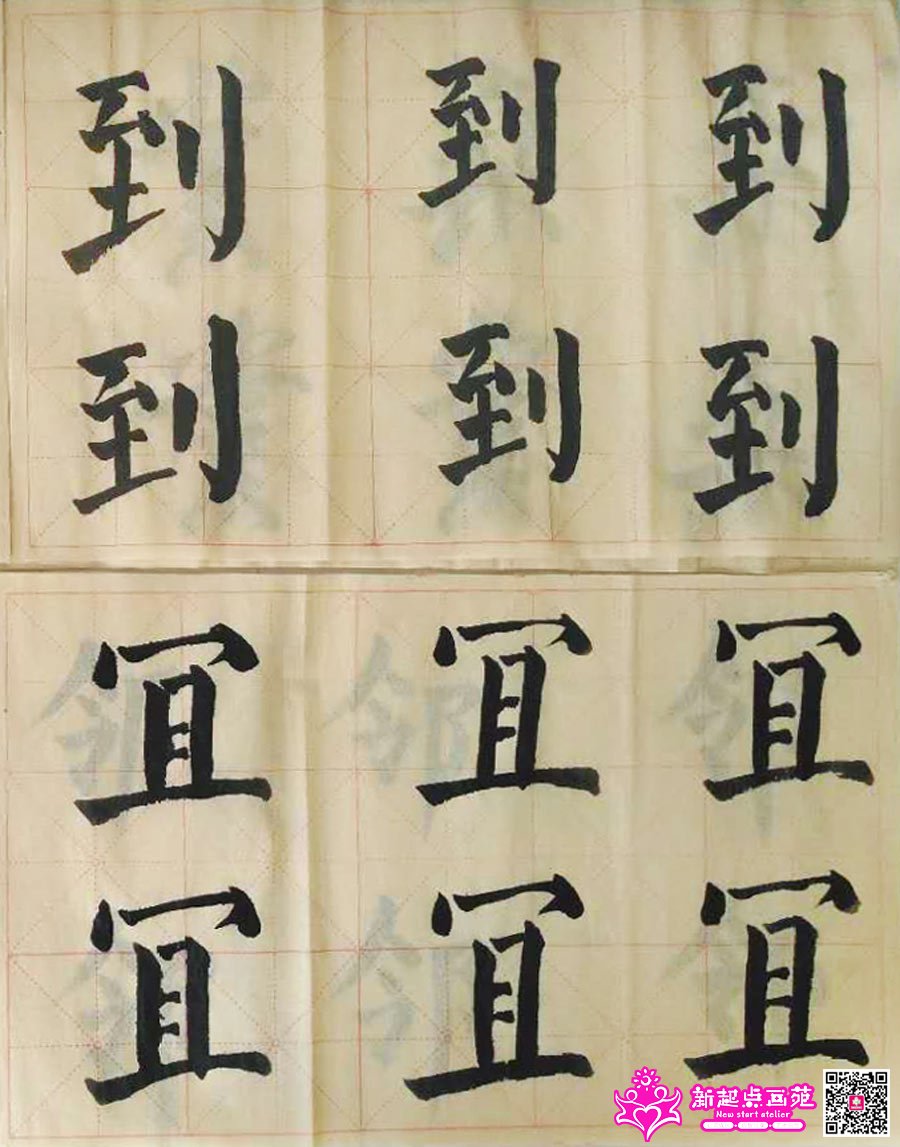 到 到 到
到 到 到
冝 冝 冝
冝 冝 冝
新起点画苑
New start atelier